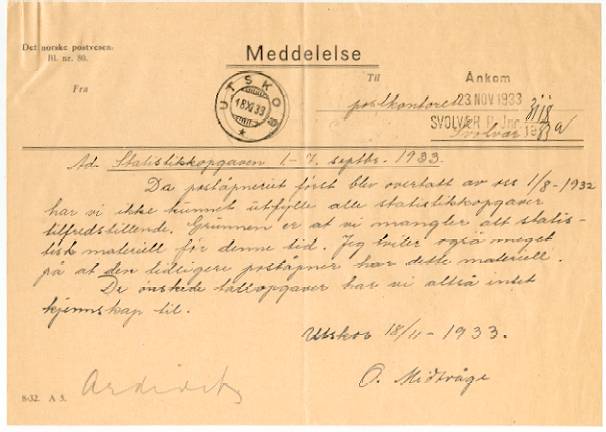 Det norske postvesen.
Bl. nr. 80.
Meddelelse
Fra
Til
UTSKOR
18 XI 33
Ankom
postkontoret 23 NOV 1933
SVOLVÆR P. Jnr.
Svolvær 19
Ad. Statistikkopgaven 1-7. septbr. 1933.
Da poståpneriet först blev overtatt av oss 1/8-1932
har vi ikke kunnet utfylle alle statistikkopgaver
tilfredstillende. Grunnen er at vi mangler alt statis-
tisk materiell för denne tid. Jeg tviler også meget
på at den tidligere poståpner har dette materiell.
De önskede tallopgaver har vi altså intet
kjennskap til.
Utskor 18/11-1933.
O. Midtvåge
8-32. A 5.